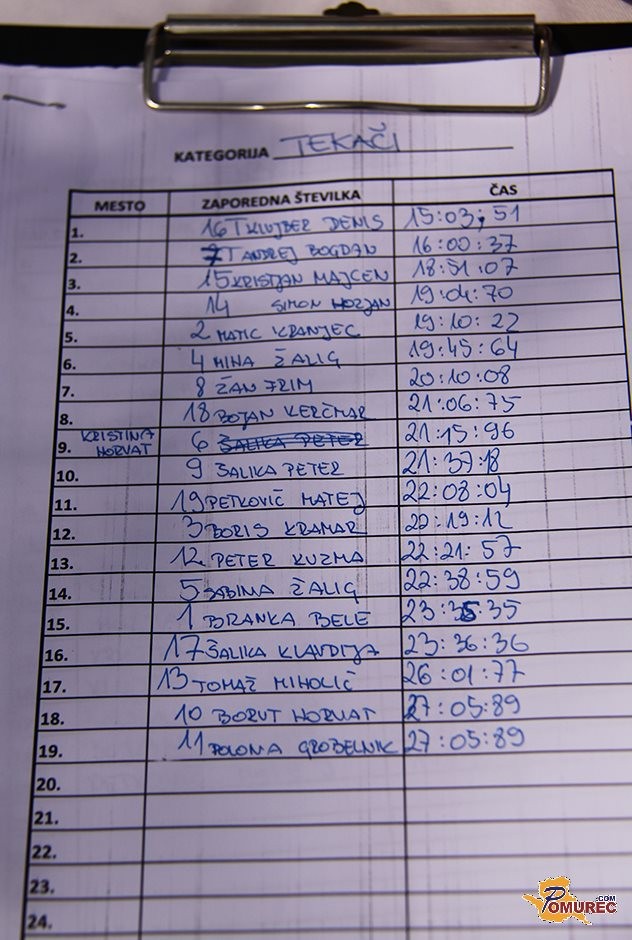 KATEGORIJA TEKAČI
MESTO ZAPOREDNA ŠTEVILKA ČAS
1. 16 T KLUJBER DENIS 15:03:51
2. 7 T ANDREJ BOGDAN 16:00:37
3. 15 KRISTJAN MAJCEN 18:51:07
4. 14 SIMON HORJAN 19:04:70
5. 2 MATIC KRANJEC 19:10:22
6. 4 MIHA ŽALIG 19:45:64
7. 8 ŽAN FRIM 20:10:08
8. 18 BOJAN KERČMAR 21:06:75
9. KRISTINA HORVAT 6 ŠALIKA PETER 21:15:96
10. 9 ŠALIKA PETER 21:37:18
11. 19 PETKOVIČ MATEJ 22:08:04
12. 3 BORIS KRAMAR 22:19:12
13. 12 PETER KUZMA 22:21:57
14. 5 SABINA ŽALIG 22:38:59
15. 1 BRANKA BELE 23:35:35
16. 17 ŠALIKA KLAVDIJA 23:36:36
17. 13 TOMAŽ MIHOLIČ 26:01:77
18. 10 BORUT HORVAT 27:05:89
19. 11 POLONA GROBELNIK 27:05:89
20.
21.
22.
23.
24.
POMUREC.COM